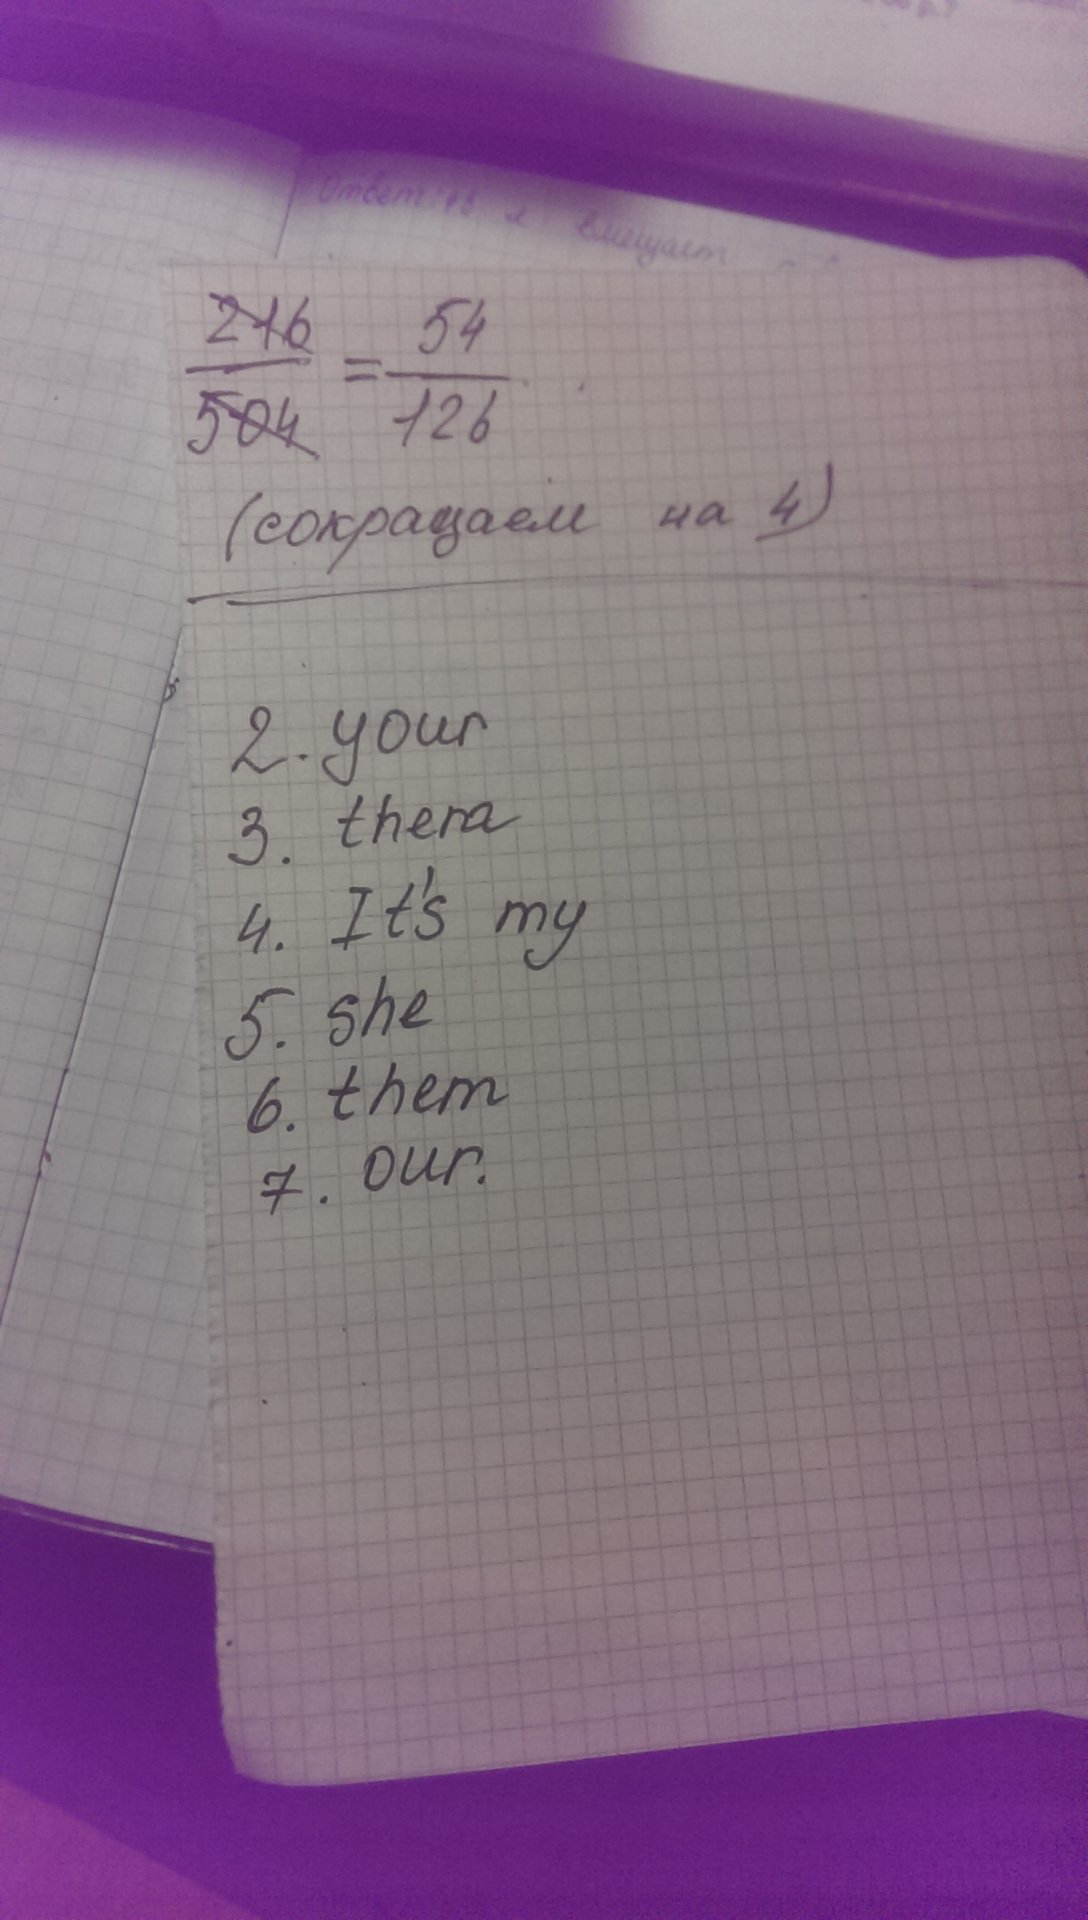 Ответ: вмещает
216/504 = 54/126
(сокращаем на 4)
2. your
3. thera
4. It's my
5. she
6. them
7. our.